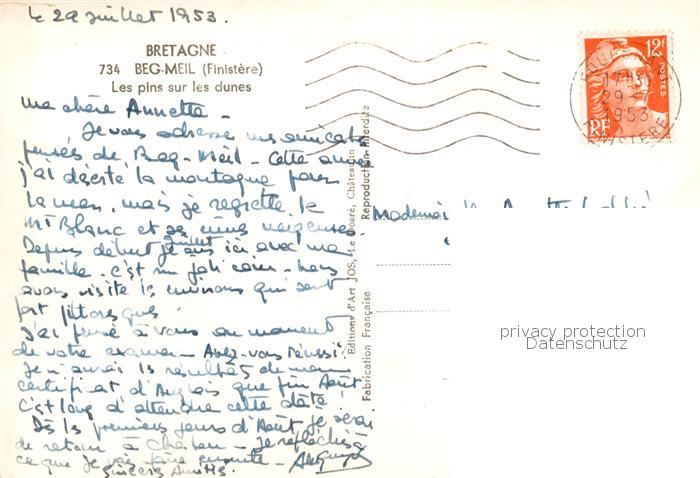 le 29 juillet 1953.
BRETAGNE
734 BEG-MEIL (Finistère)
Les pins sur les dunes
Ma chère Annette -
Je vous adresse mes amicales
pensées de Beg-Meil - Cette année
j'ai déserté la montagne pour
la mer, mais je regrette le
Mt Blanc et ses cimes neigeuses
Depuis début juillet je suis ici avec ma
famille - c'est un joli coin - nous
avons visité les environs qui sont
fort pittoresques
J'ai pensé à vous au moment
de votre examen - Avez-vous réussi?
Je n'aurai les résultats de mon
certificat d'Anglais que fin Août
C'est long d'attendre cette date!
Dès les premiers jours d'Août, je serai
de retour à - Je réfléchis à
ce que je vais faire ensuite -
Sincères Amitiés
Editions d'Art JOS, Le Doaré, Châteaulin
Reproduction Interdite
Fabrication Française
12F
POSTES
RF
17H
29-7
1953
FINISTERE
Mademoiselle
privacy protection
Datenschutz